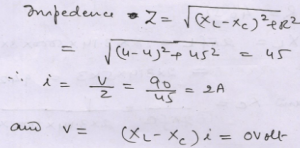 Impedence Z = √(X_L - X_C)² + R²
= √(4-4)² + 45² = 45
∴ i = V/Z = 90/45 = 2A
and V = (X_L - X_C) i = 0 Volt